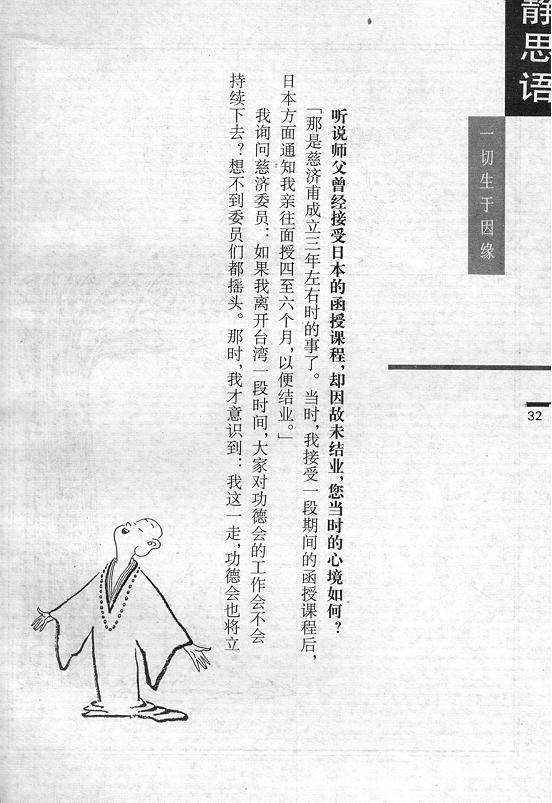 静思语
一切生于因缘
32
听说师父曾经接受日本的函授课程，却因故未结业，您当时的心境如何？
「那是慈济甫成立三年左右时的事了。当时，我接受一段期间的函授课程后，
日本方面通知我亲往面授四至六个月，以便结业。」
我询问慈济委员：如果我离开台湾一段时间，大家对功德会的工作会不会
持续下去？想不到委员们都摇头。那时，我才意识到：我这一走，功德会也将立